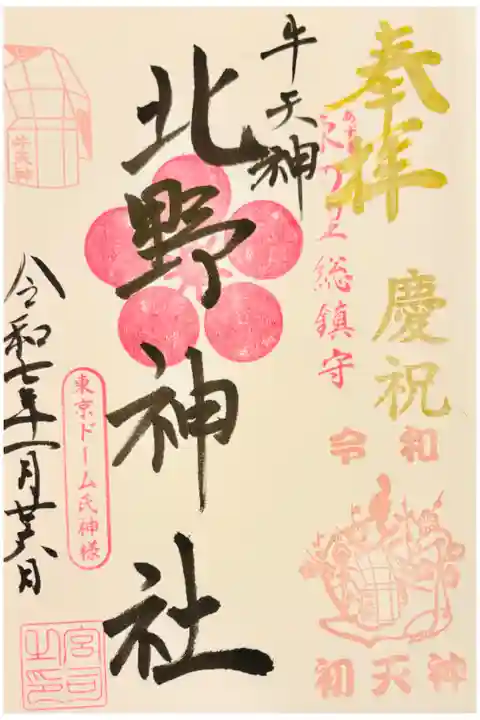 奉拝 慶祝
令和
初天神
総鎮守
牛天神
北野神社
牛天神
東京ドーム氏神様
令和七年一月廿日
宮司之印